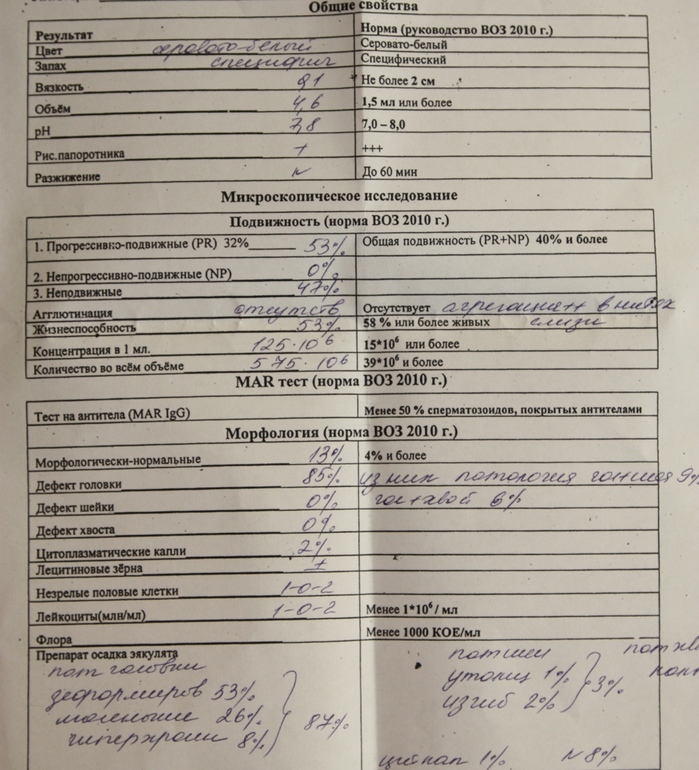 Общие свойства
Результат Норма (руководство ВОЗ 2010 г.)
Цвет серовато-белый Серовато-белый
Запах специфич Специфический
Вязкость 0,1 Не более 2 см
Объём 4,6 1,5 мл или более
pH 7,8 7,0 – 8,0
Рис.папоротника + +++
Разжижение N До 60 мин
Микроскопическое исследование
Подвижность (норма ВОЗ 2010 г.)
1. Прогрессивно-подвижные (PR) 32% 53% Общая подвижность (PR+NP) 40% и более
2. Непрогрессивно-подвижные (NP) 0%
3. Неподвижные 47%
Агглютинация отсутств Отсутствует агрегация + в нитях
Жизнеспособность 53% 58 % или более живых слизи
Концентрация в 1 мл. 125·10⁶ 15*10⁶ или более
Количество во всём объёме 575·10⁶ 39*10⁶ и более
MAR тест (норма ВОЗ 2010 г.)
Тест на антитела (MAR IgG) Менее 50 % сперматозоидов, покрытых антителами
Морфология (норма ВОЗ 2010 г.)
Морфологически-нормальные 13% 4% и более
Дефект головки 85% из них патология гол+шея 9%
Дефект шейки 0% гол+хвост 6%
Дефект хвоста 0%
Цитоплазматические капли 2%
Лецитиновые зёрна +
Незрелые половые клетки 1-0-2
Лейкоциты(млн/мл) 1-0-2 Менее 1*10⁶ / мл
Флора Менее 1000 КОЕ/мл
Препарат осадка эякулята
пат головки
деформиров 53%
маленькие 26% 87%
гиперхром 8%
пат шеи
утолщ 1% 3%
изгиб 2%
пат
цит кап 1% N 8%